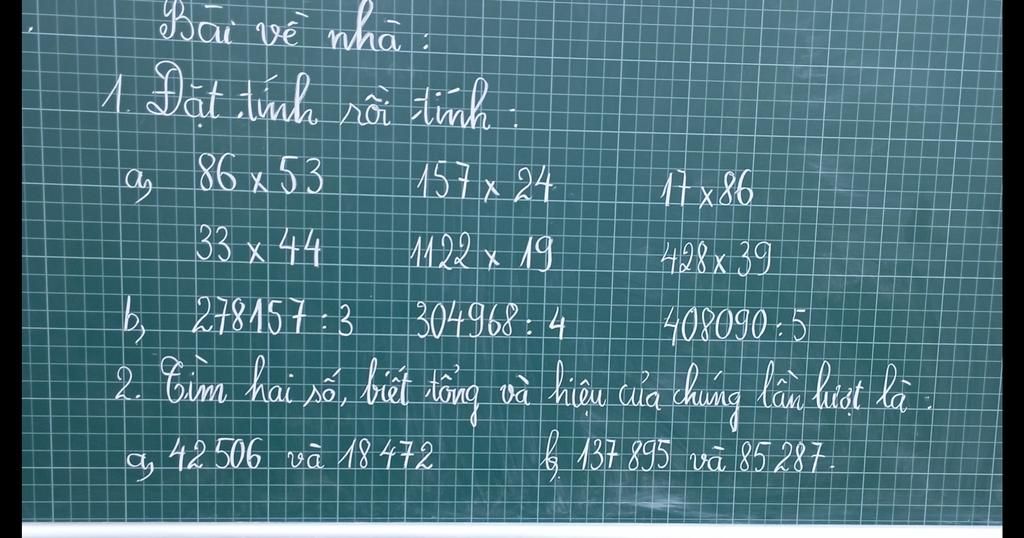 Bài về nhà :
1. Đặt tính rồi tính :
a, 86 x 53 157 x 24 17 x 86
33 x 44 1122 x 19 428 x 39
b, 278157 : 3 304968 : 4 408090 : 5
2. Tìm hai số, biết tổng và hiệu của chúng lần lượt là :
a, 42 506 và 18 472 b, 137 895 và 85 287.